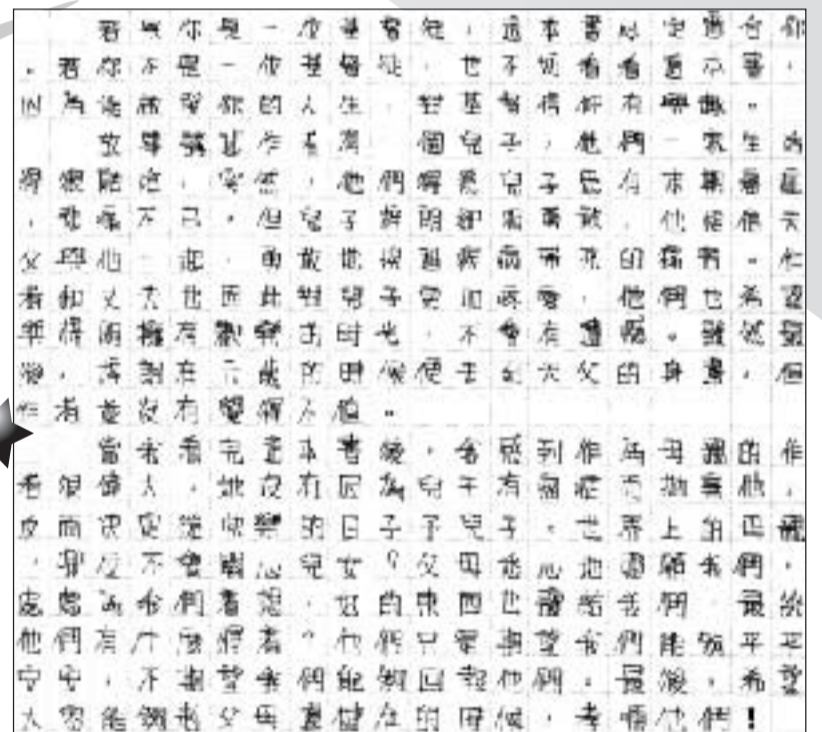 若果你是一位基督徒，這本書必定適合你
。若你不是一位基督徒，也不妨看看這本書，
因為能啟發你的人生，對基督信仰有興趣。
故事講述作者有一個兒子，他們一家生活
得很融洽，突然，他們得悉兒子患有末期癌症
，悲痛不已。但兒子 朗卻很勇敢，他相信天
父與他一起，勇敢地 過疾病帶來的痛苦。作
者和丈夫也因此對兒子更加疼愛，他們也希望
與 朗擁有歡樂的時光，不會有遺憾。雖然最
後， 朗在六歲的時候便去到天父的身邊，但
作者並沒有變得 。
當我看完這本書後，會感到作為母親的作
者很偉大，她沒有因為兒子有癌症而拋棄他，
反而決定 快樂的日子予兒子。世界上的母親
，哪反不會關心兒女？父母悉心地照顧我們，
處處為我們着想，好的東西也讓給我們，最終
他們有什麼得着？他們只要期望我們能夠平平
安安，不期望我們能夠回報他們。最後，希望
大家能夠趁父母還健在的時候，孝順他們！